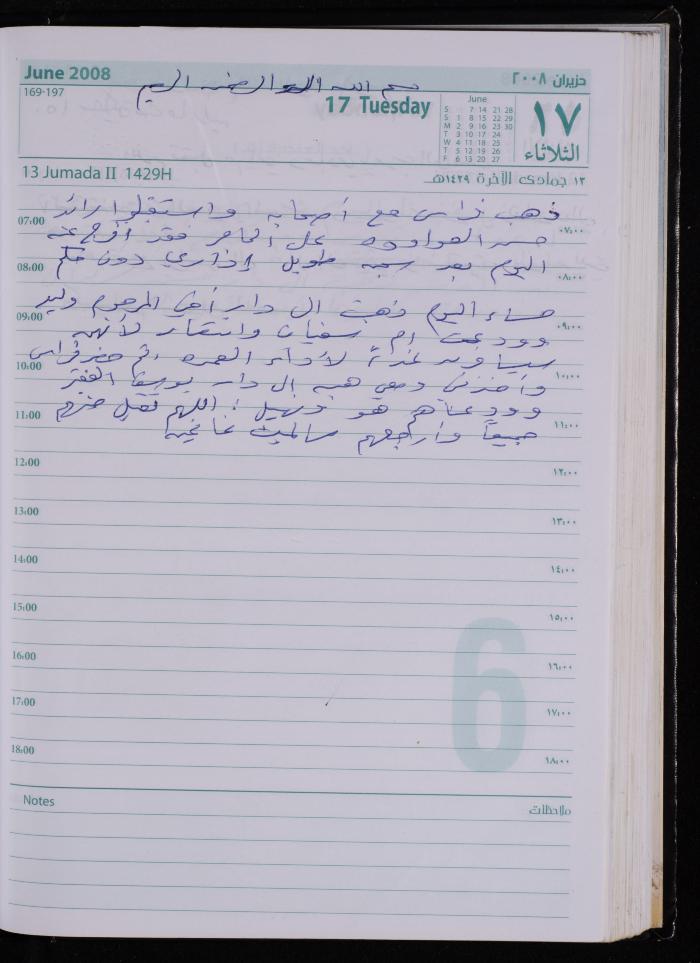 June 2008
حزيران ٢٠٠٨
بسم الله الرحمن الرحيم
169-197
17 Tuesday
June
S 7 14 21 28
S 1 8 15 22 29
M 2 9 16 23 30
T 3 10 17 24
W 4 11 18 25
T 5 12 19 26
F 6 13 20 27
١٧
الثلاثاء
13 Jumada II 1429H
١٣ جمادى الآخرة ١٤٢٩هـ
ذهب فراس مع أصحابه واستقبلوا رائد
07:00
٠٧:٠٠
على الحاجز فقد أفرج عنه
اليوم بعد سجنه طويل إداري دون حكم
08:00
٠٨:٠٠
مساء اليوم ذهبت الى دار أخي المرحوم وليد
09:00
٠٩:٠٠
وودعت ام سفيان وانتصار لأنهم
سيسافروا غداً لأداء العمرة ثم حضر فراس
10:00
١٠:٠٠
وأخذني ومعي هبه الى دار يوسف
وودعناهم هو وسهيل اللهم تقبل منهم
11:00
١١:٠٠
جميعاً وأرجعهم سالمين غانمين
12:00
١٢:٠٠
13:00
١٣:٠٠
14:00
١٤:٠٠
15:00
١٥:٠٠
16:00
١٦:٠٠
17:00
١٧:٠٠
18:00
١٨:٠٠
6
Notes
ملاحظات